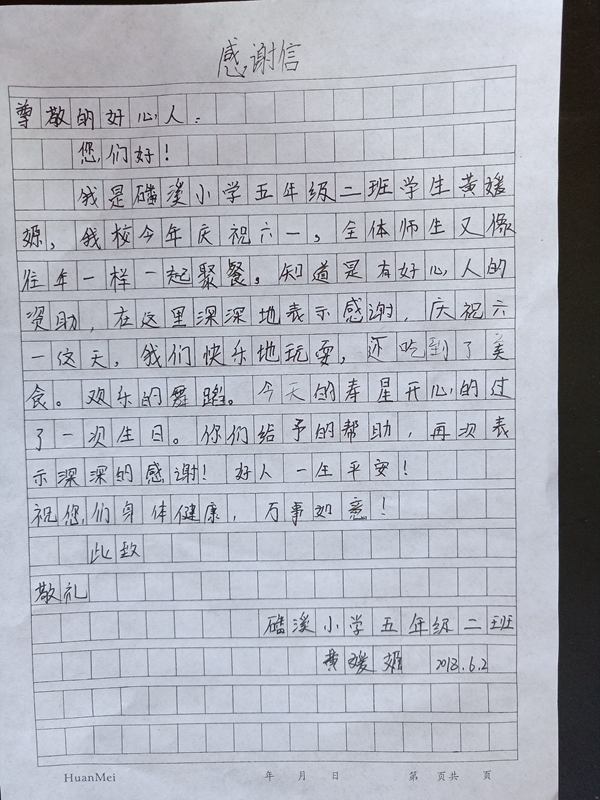 感谢信
尊敬的好心人：
您们好！
我是磻溪小学五年级二班学生黄媛
嫄，我校今年庆祝六一，全体师生又像
往年一样一起聚餐，知道是有好心人的
资助，在这里深深地表示感谢，庆祝六
一这天，我们快乐地玩耍，还吃到了美
食。欢乐的舞蹈。今天的寿星开心的过
了一次生日。你们给予的帮助，再次表
示深深的感谢！好人一生平安！
祝您们身体健康，万事如意！
此致
敬礼
磻溪小学五年级二班
黄媛嫄 2018.6.2
HuanMei 年 月 日 第 页共 页